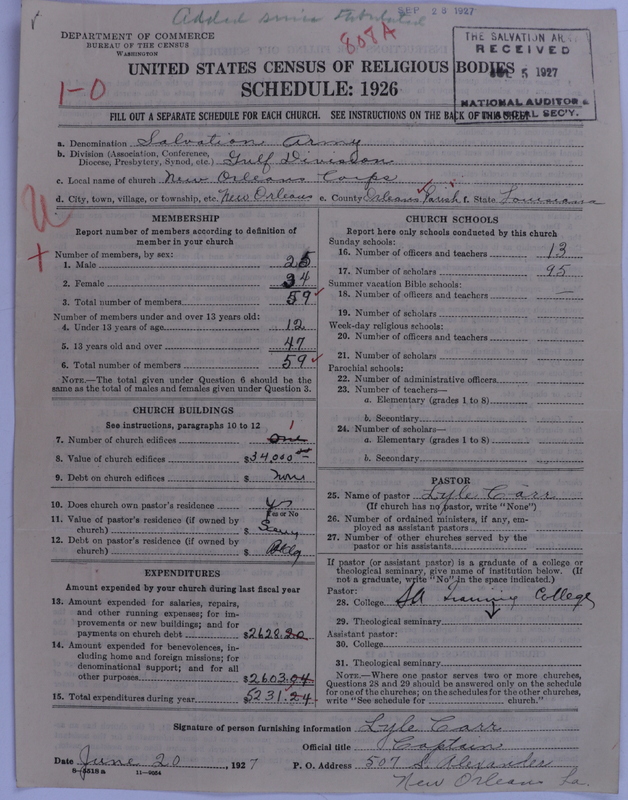 Added since tabulated
SEP 23 1927
808A
DEPARTMENT OF COMMERCE
BUREAU OF THE CENSUS
WASHINGTON
THE SALVATION AR
RECEIVED
5 1927
NATIONAL AUDITOR &
FINANCIAL SEC'Y.
UNITED STATES CENSUS OF RELIGIOUS BODIES
1-0
SCHEDULE: 1926
FILL OUT A SEPARATE SCHEDULE FOR EACH CHURCH. SEE INSTRUCTIONS ON THE BACK OF THIS SHEET
a. Denomination Salvation Army
b. Division (Association, Conference, Diocese, Presbytery, Synod, etc.) Gulf Division
c. Local name of church New Orleans Corps
d. City, town, village, or township, etc. New Orleans e. County Orleans Parish f. State Louisiana
MEMBERSHIP
Report number of members according to definition of
member in your church
Number of members, by sex:
1. Male 25
2. Female 34
3. Total number of members 59
Number of members under and over 13 years old:
4. Under 13 years of age 12
5. 13 years old and over 47
6. Total number of members 59
NOTE.—The total given under Question 6 should be
same as the total of males and females given under Question 3.
CHURCH BUILDINGS
See instructions, paragraphs 10 to 12 1
7. Number of church edifices one
8. Value of church edifices $34,000.00
9. Debt on church edifices $ None
10. Does church own pastor's residence
Yes or No
11. Value of pastor's residence (if owned by
church) $
12. Debt on pastor's residence (if owned by
church) $
EXPENDITURES
Amount expended by your church during last fiscal year
13. Amount expended for salaries, repairs,
and other running expenses; for im-
provements or new buildings; and for
payments on church debt $2628.20
14. Amount expended for benevolences, in-
cluding home and foreign missions; for
denominational support; and for all
other purposes $2603.04
15. Total expenditures during year $5231.24
CHURCH SCHOOLS
Report here only schools conducted by this church
Sunday schools:
16. Number of officers and teachers 13
17. Number of scholars 95
Summer vacation Bible schools:
18. Number of officers and teachers —
19. Number of scholars
Week-day religious schools:
20. Number of officers and teachers
21. Number of scholars
Parochial schools:
22. Number of administrative officers
23. Number of teachers—
a. Elementary (grades 1 to 8)
b. Secondary
24. Number of scholars—
a. Elementary (grades 1 to 8)
b. Secondary
PASTOR
25. Name of pastor Lyle Carr
(If church has no pastor, write "None")
26. Number of ordained ministers, if any, em-
ployed as assistant pastors
27. Number of other churches served by the
pastor or his assistants
If pastor (or assistant pastor) is a graduate of a college or
theological seminary, give name of institution below. (If
not a graduate, write "No" in the space indicated.)
Pastor:
28. College SA Training College
29. Theological seminary
Assistant pastor:
30. College
31. Theological seminary
NOTE.—Where one pastor serves two or more churches,
Questions 28 and 29 should be answered only on the schedule
for one of the churches; on the schedules for the other churches,
write "See schedule for church."
Signature of person furnishing information Lyle Carr
Official title Captain
Date June 20, 1927 P. O. Address 507 S. Alexander
8-5518 a 11-9054 New Orleans La.